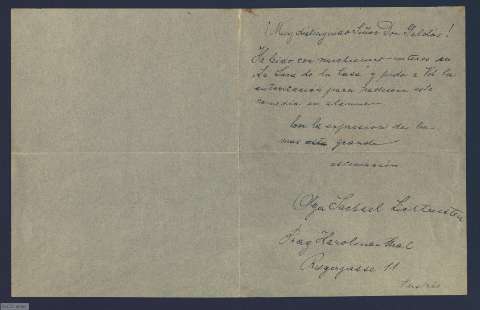 ¡Muy distinguido Señor Don Galdós!
He leído con muchísimo interes su
"La Loca de la Casa" y pido a Vd. la
autorización para traducir esta
comedia en aleman.
Con la expresion de la
mas grande
estimación
Olga Sachsel
Prag Karolinenthal
Riegergasse 11
Austria